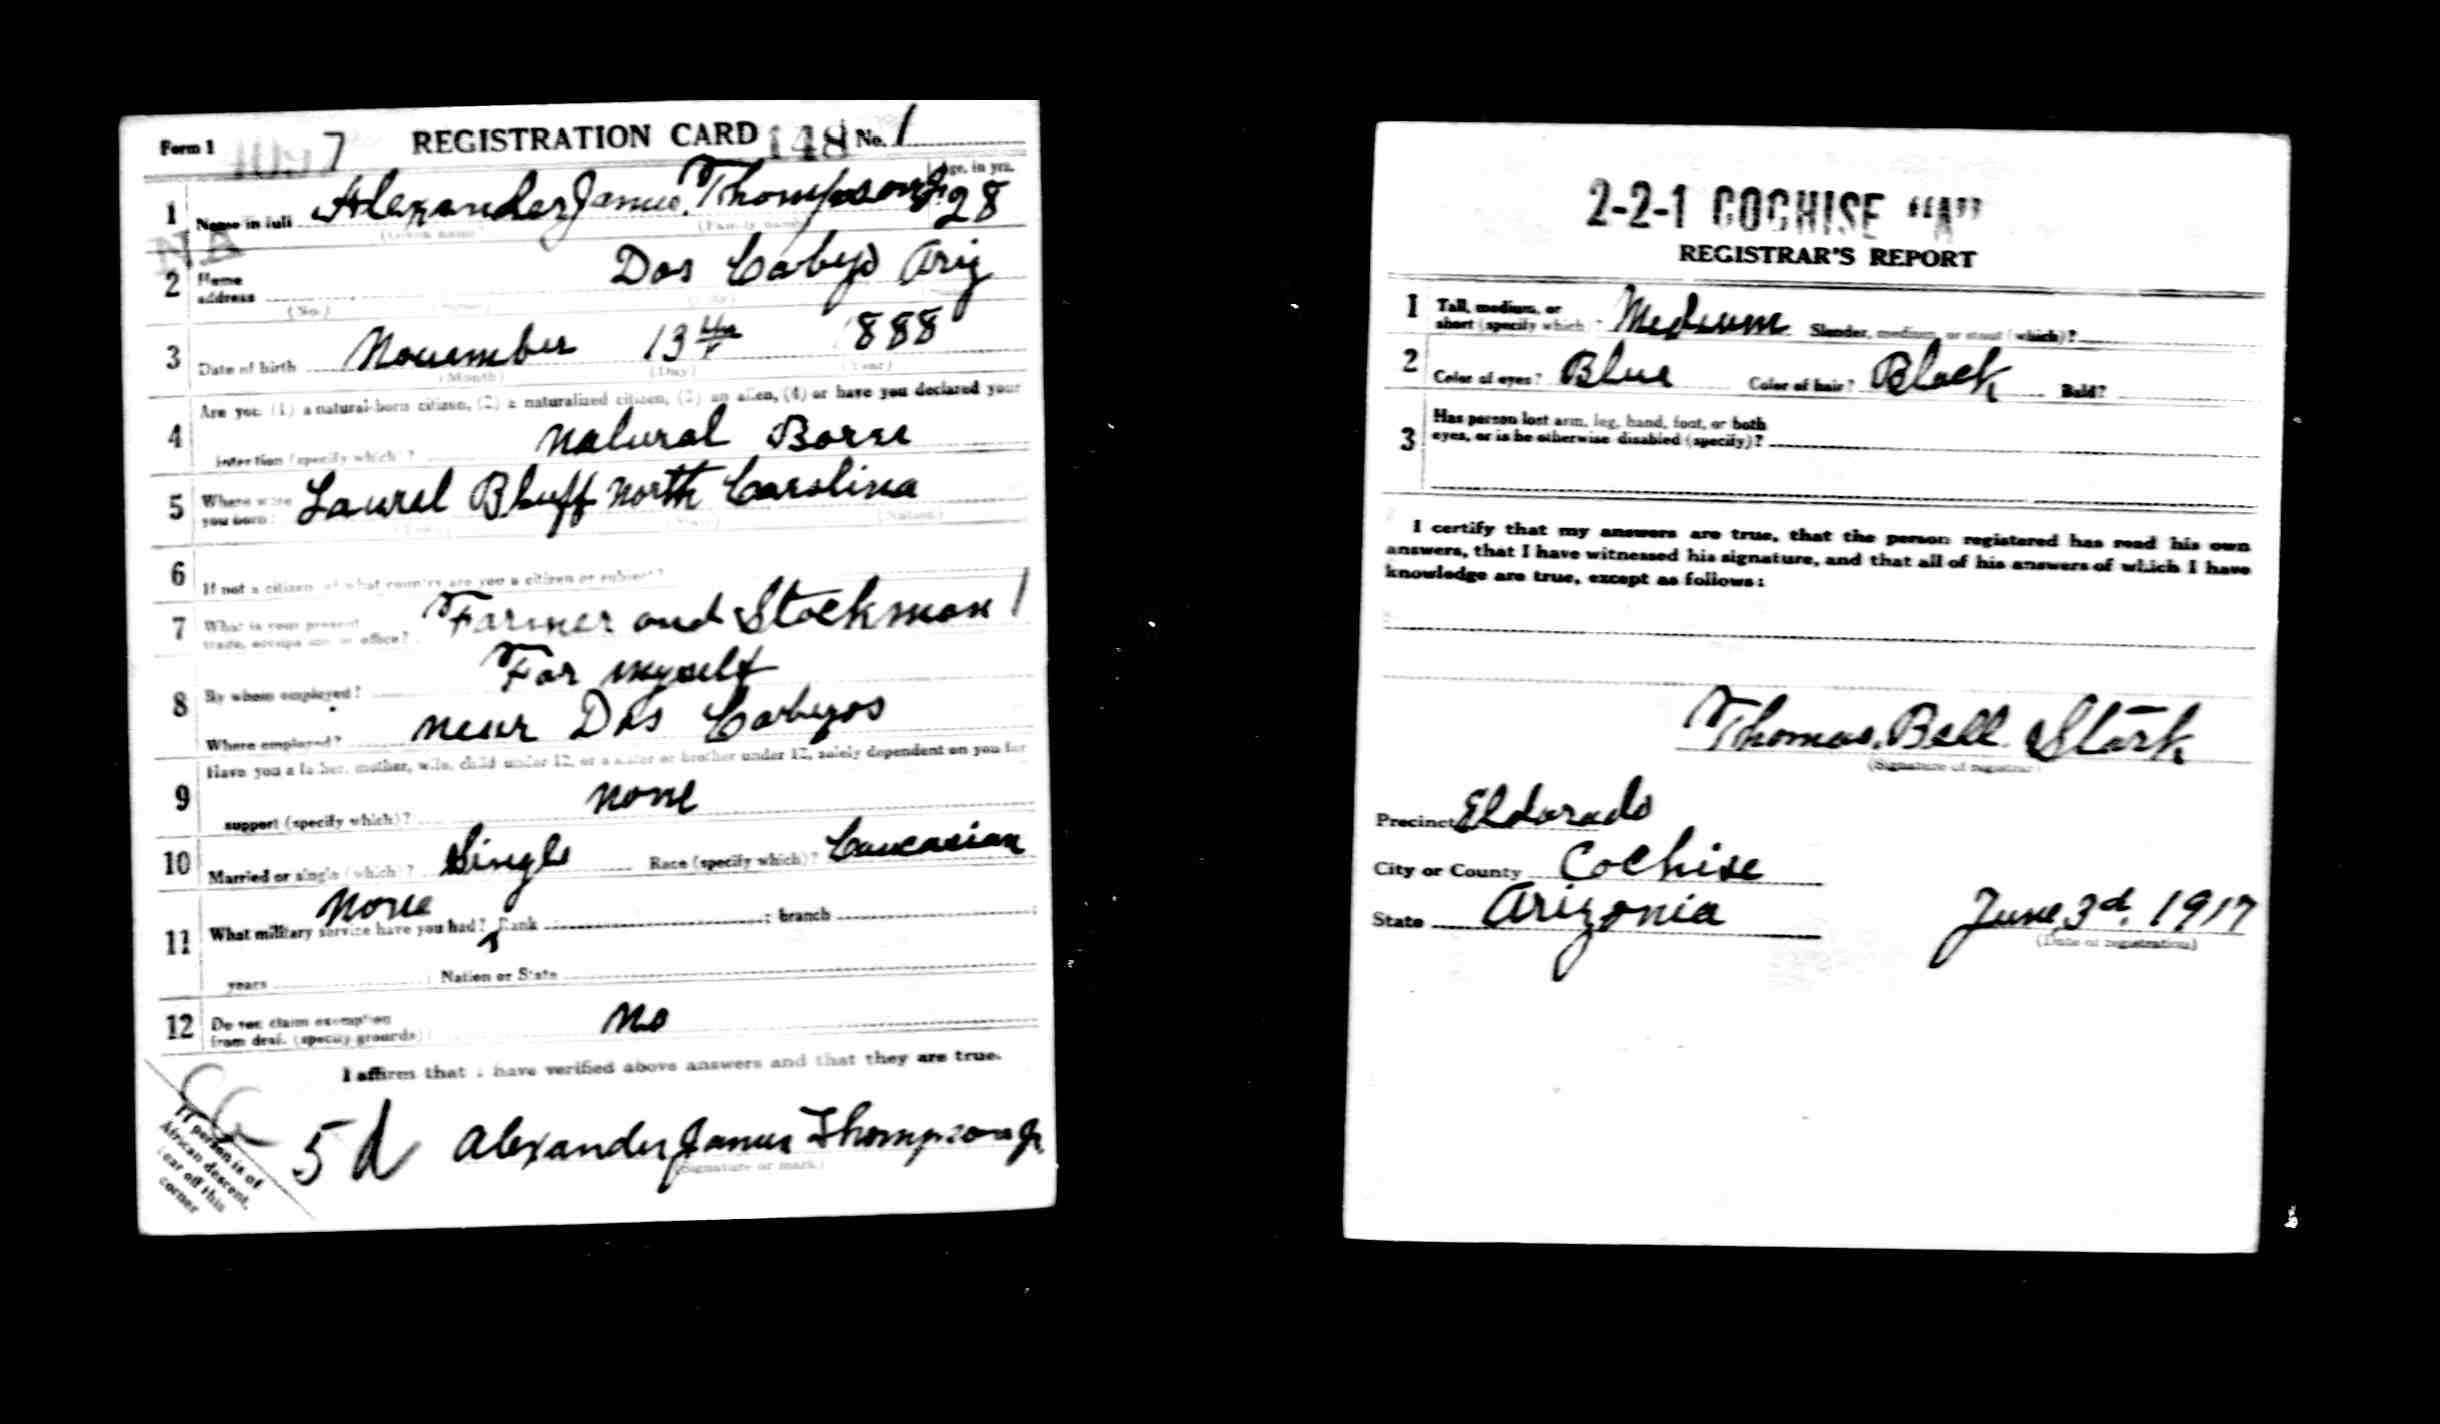 Form 1 7 REGISTRATION CARD 148 No. 1
Age, in yrs.
1 Name in full Alexander James Thompson Jr. 28
(Given name) (Family name)
NA
2 Home address Dos Cabezos Ariz
(No.)
3 Date of birth November 13th 1888
(Month) (Day) (Year)
Are you (1) a natural-born citizen, (2) a naturalized citizen, (3) an alien, (4) or have you declared your
4 intention (specify which)? Natural Born
5 Where were you born? Laurel Bluff North Carolina
(Nation)
6 If not a citizen, of what country are you a citizen or subject?
7 What is your present trade, occupation or office? Farmer and Stockman 1
8 By whom employed? For myself
Where employed? near Dos Cabezos
Have you a father, mother, wife, child under 12, or a sister or brother under 12, solely dependent on you for
9 support (specify which)? None
10 Married or single (which)? Single Race (specify which)? Caucasian
None
11 What military service have you had? Rank ; branch ;
years ; Nation or State
12 Do you claim exemption from draft (specify grounds)? No
I affirm that I have verified above answers and that they are true.
5 d Alexander James Thompson Jr.
(Signature or mark)
If person is of
African descent,
tear off this
corner
2-2-1 COCHISE "A"
REGISTRAR'S REPORT
1 Tall, medium, or short (specify which)? Medium Slender, medium, or stout (which)?
2 Color of eyes? Blue Color of hair? Black Bald?
3 Has person lost arm, leg, hand, foot, or both
eyes, or is he otherwise disabled (specify)?
I certify that my answers are true, that the person registered has read his own
answers, that I have witnessed his signature, and that all of his answers of which I have
knowledge are true, except as follows:
Thomas Bell Stark
(Signature of registrar)
Precinct Eldorado
City or County Cochise
State Arizonia June 3d. 1917
(Date of registration)